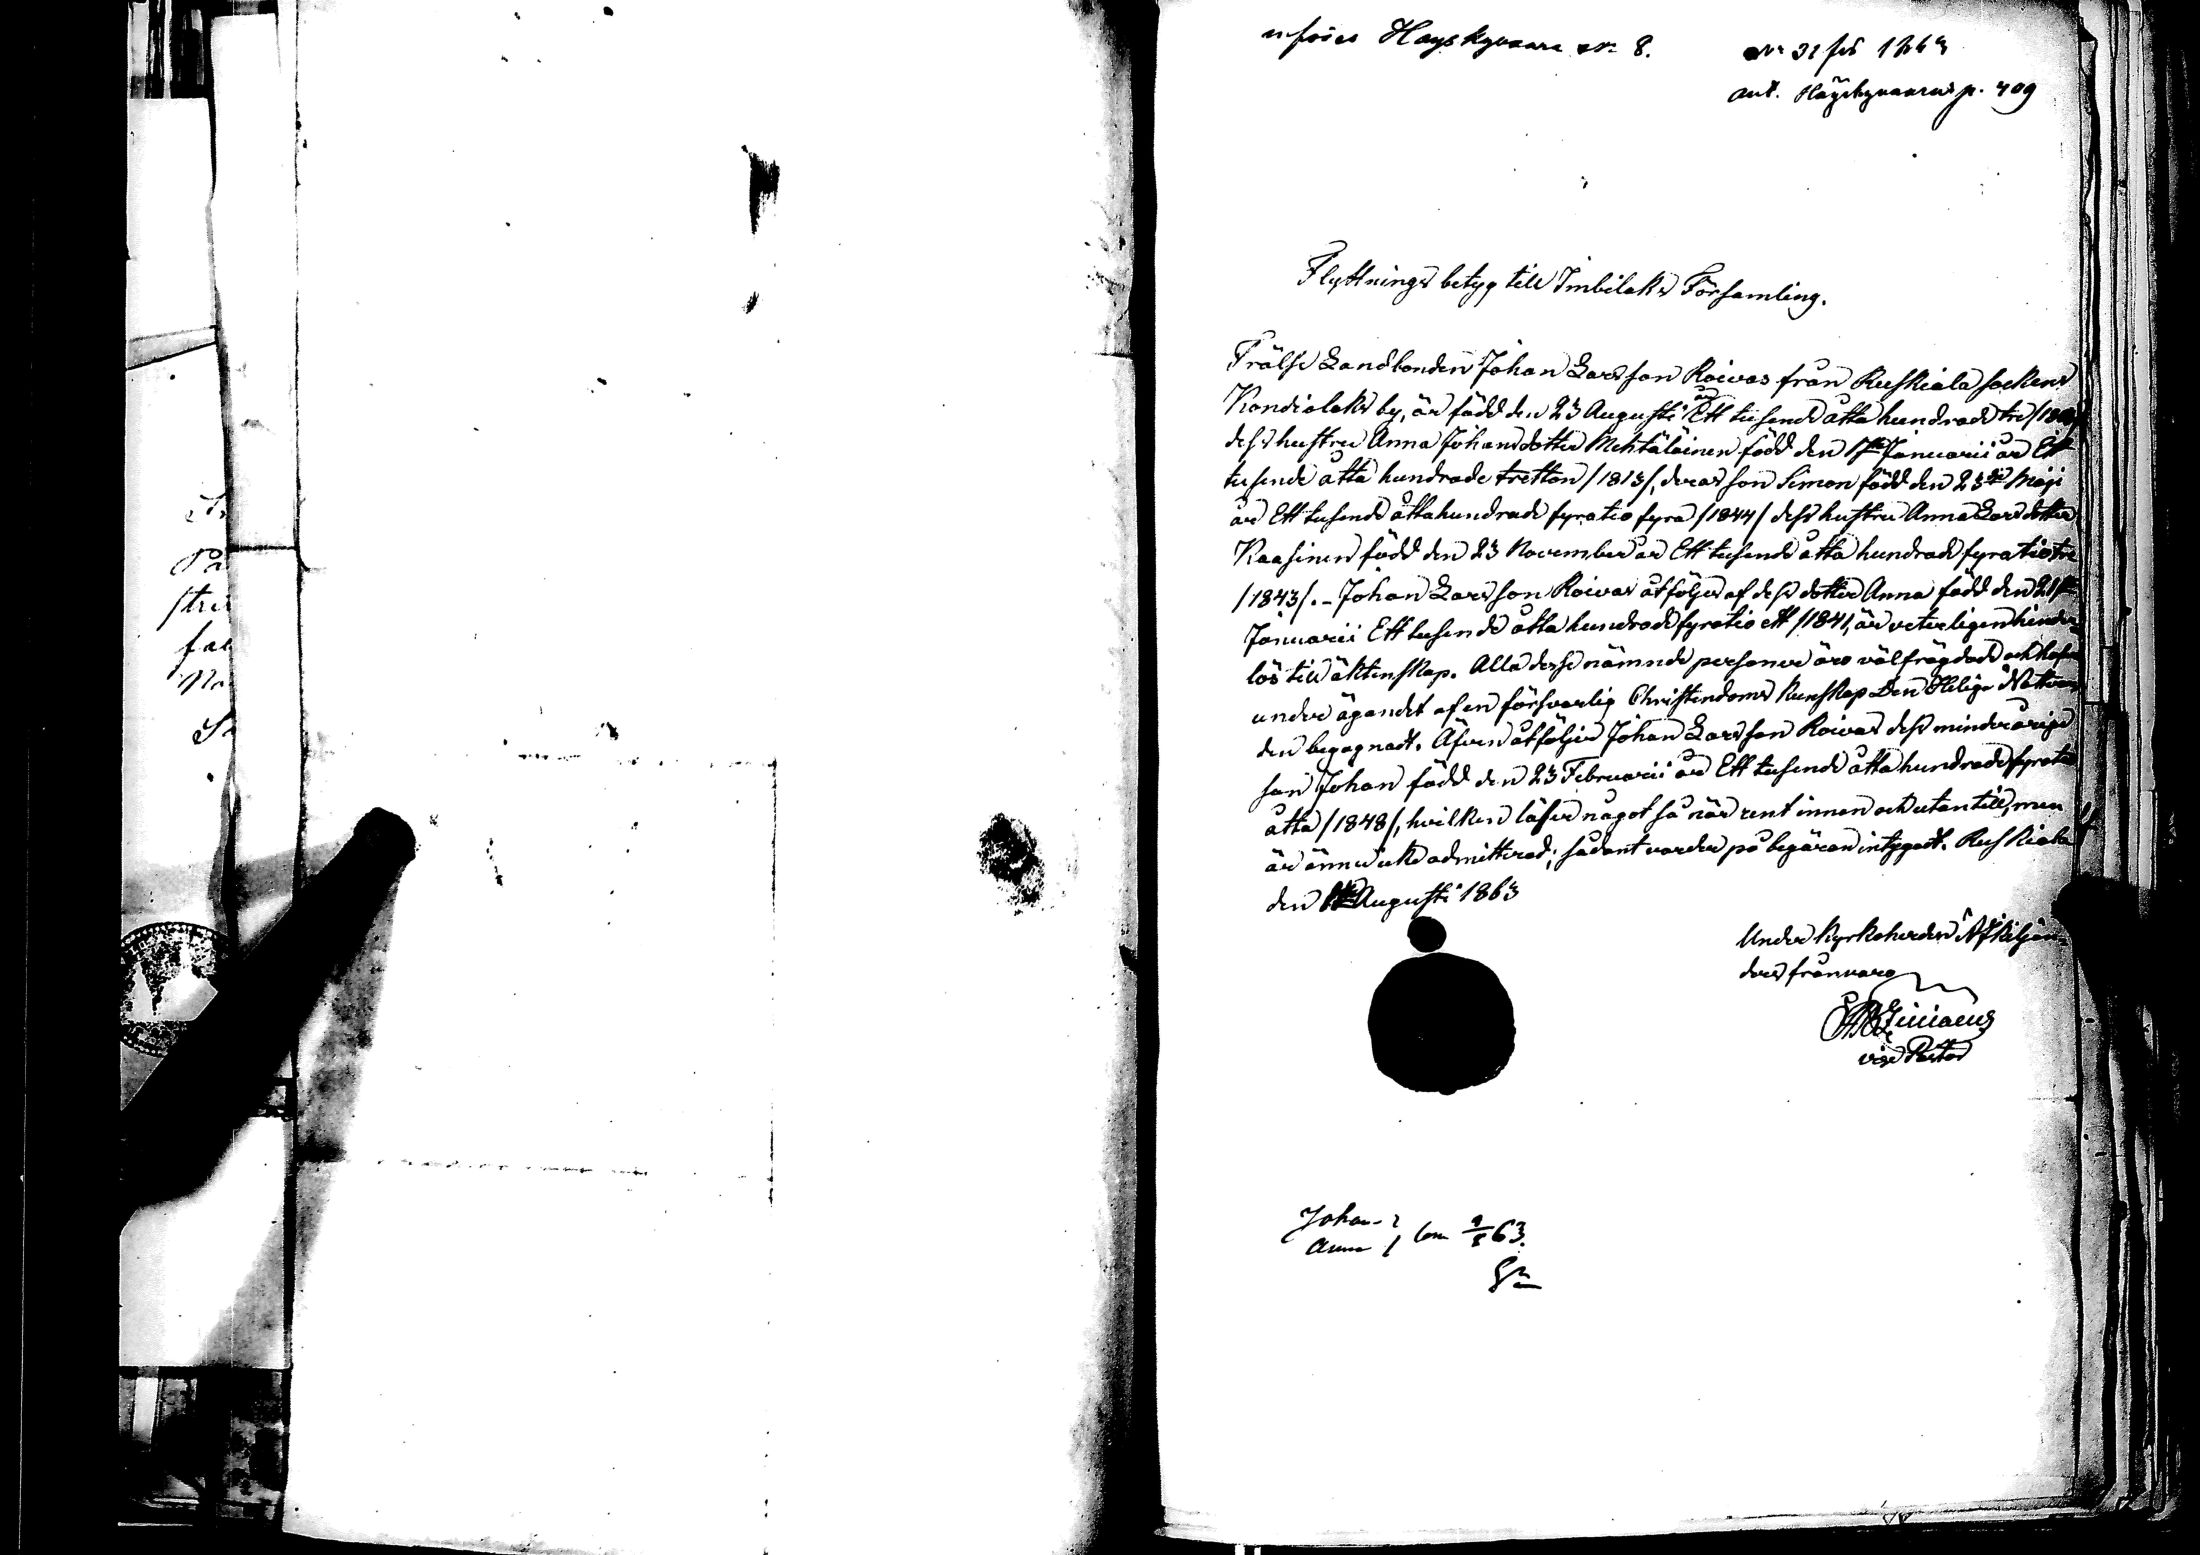 införes Hayskyvaara No 8.
No 31 fol 1863
ant. Häyskyvaara p. 409
Flyttnings betyg till Imbilaks Församling.
Frälse Landbonden Johan Larsson Roivas från Ruskiala sockens
Kondiolaks by, är född den 23 Augusti år Ett tusende åtta hundrade tre /1803/
dess hustru Anna Johansdotter Mehtäläinen född den 1ste Januarii år Ett
tusende åtta hundrade tretton /1813/, deras son Simon född den 23de Maji
år Ett tusende åttahundrade fyratio fyra /1844/ dess hustru Anna Larsdotter
Kaasinen född den 23 November år Ett tusende åtta hundrade fyratio tre
/1843/. - Johan Larsson Roivas åtföljes af dess dotter Anna född den 21ste
Januarii Ett tusende åtta hundrade fyratio ett /1841, är veterligen hinder-
lös till äktenskap. Alla desse nämnde personer äro välfrägdade och hafva
under ägandet af en försvarlig Christendoms kunskap Den Helige Nattvar-
den begagnadt. Äfven åtföljer Johan Larsson Roivas dess minderårige
son Johan född den 23 Februarii år Ett tusende åtta hundrade fyratio
åtta /1848/, hvilken läser något så när rent innan och utantill, men
är ännu icke admitterad; sådant varder på begäran intygadt. Ruskiala
den Augusti 1863
Under Kyrkoherden Kiljan-
ders frånvaro
vice Pastor
Johan
Anna
63.